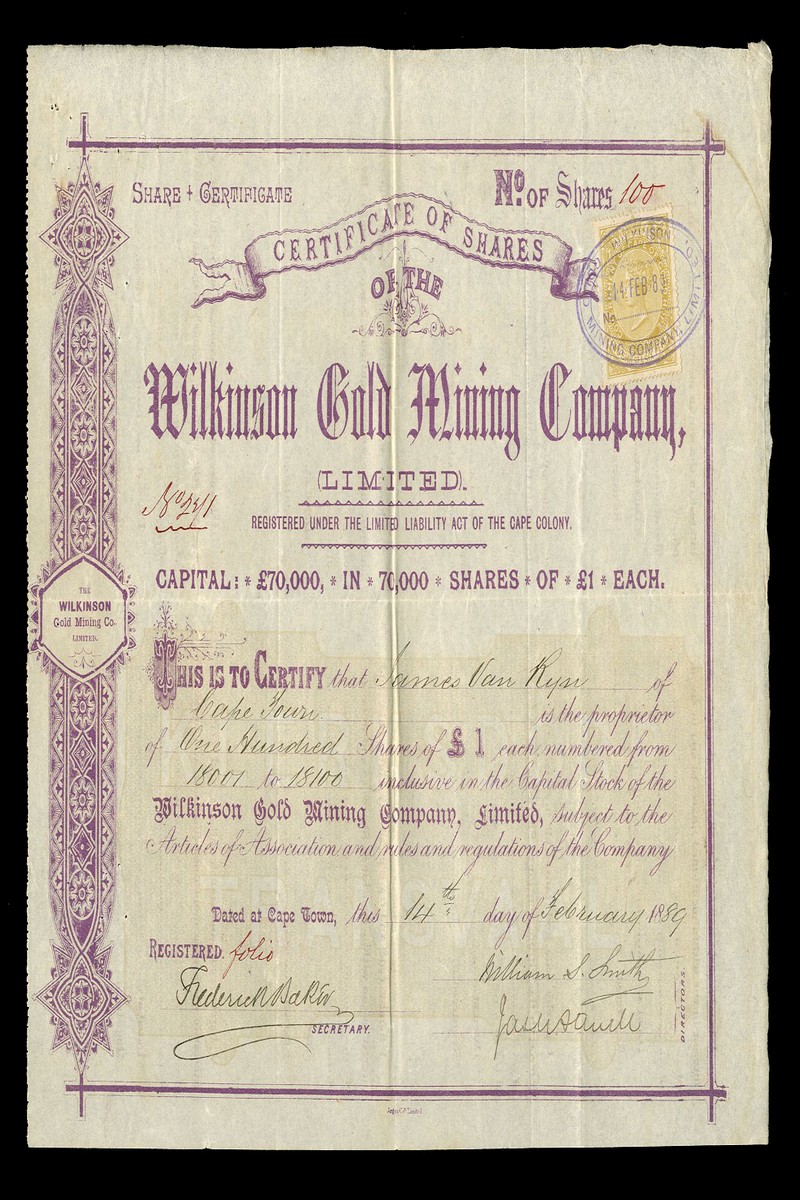 Share + Certificate
No. of Shares 100
CERTIFICATE OF SHARES
OF THE
WILKINSON
14 FEB 89
No
MINING COMPANY, LIMITED.
Wilkinson Gold Mining Company,
(LIMITED).
REGISTERED UNDER THE LIMITED LIABILITY ACT OF THE CAPE COLONY.
CAPITAL: * £70,000, * IN * 70,000 * SHARES * OF * £1 * EACH.
THE
WILKINSON
Gold Mining Co.
LIMITED.
This is to Certify that James Van Ryn of
Cape Town is the proprietor
of One Hundred Shares of £1 each, numbered from
18001 to 18100 inclusive in the Capital Stock of the
Wilkinson Gold Mining Company, Limited, subject to the
Articles of Association and rules and regulations of the Company
Dated at Cape Town, this 14th day of February 1889
REGISTERED. folio
William S. Smith
Frederick Baker
SECRETARY.
DIRECTORS.